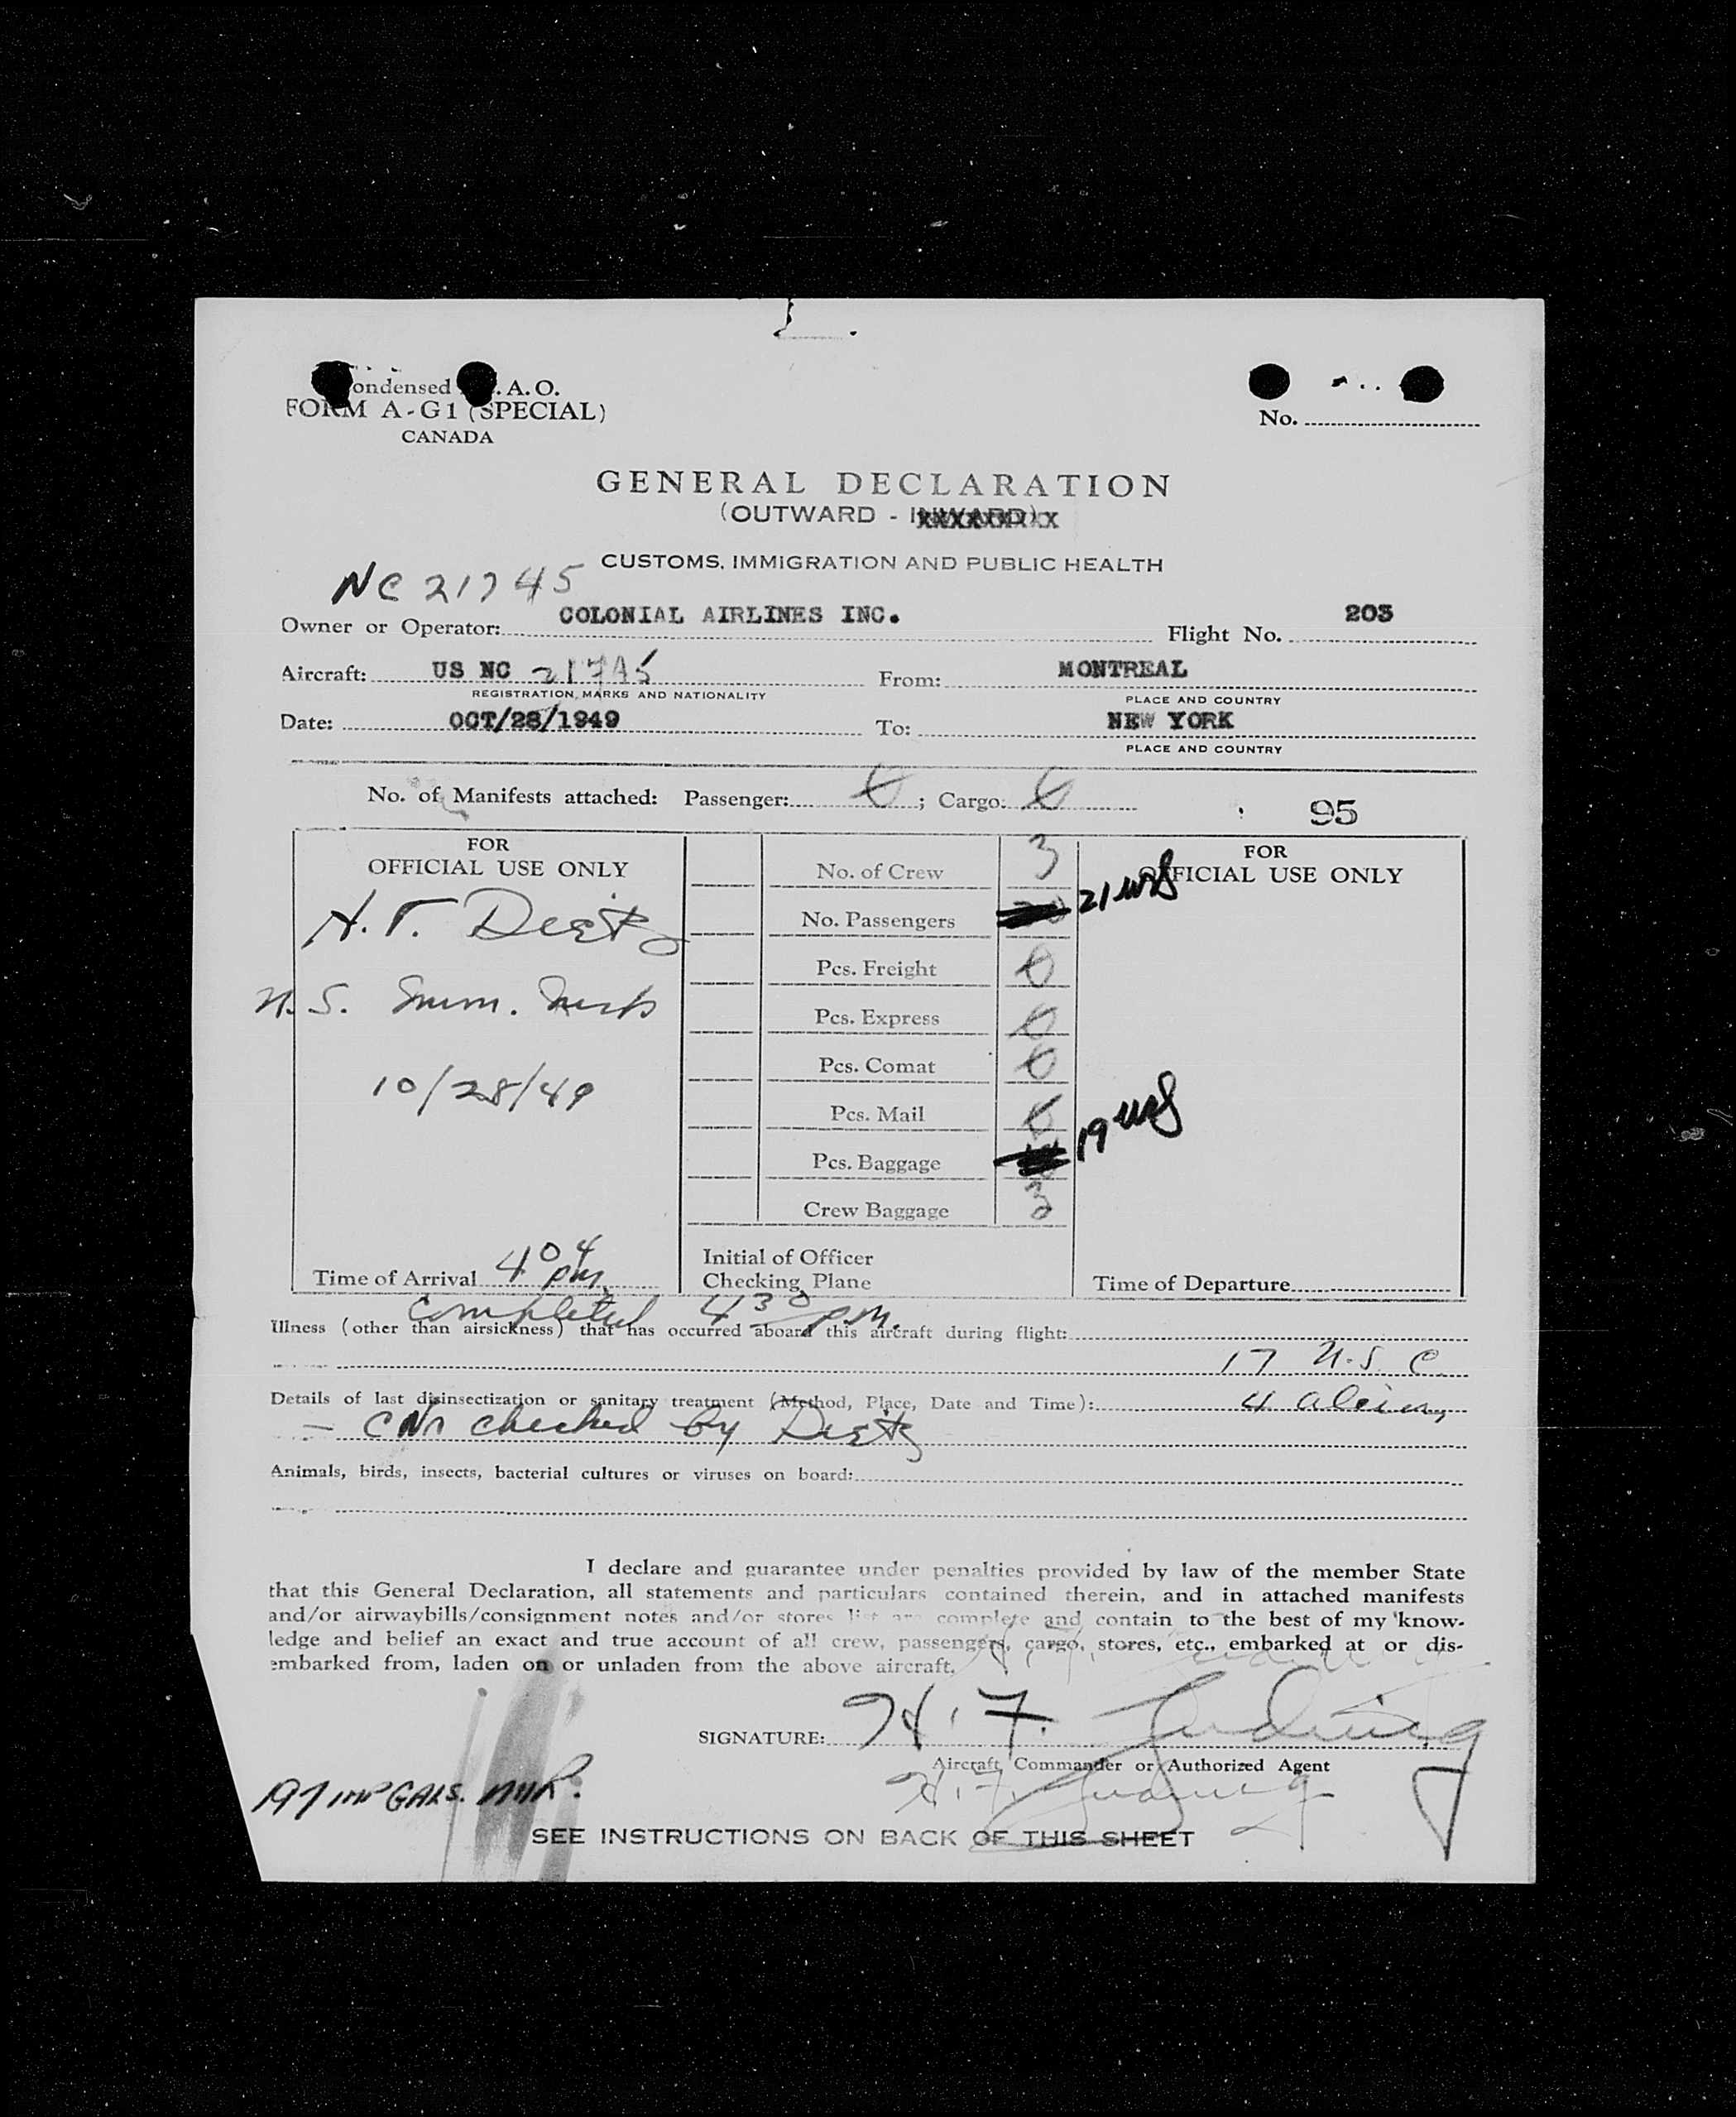 Condensed I.C.A.O.
FORM A-G1 (SPECIAL)
CANADA
No.
GENERAL DECLARATION
(OUTWARD - INWARD)
CUSTOMS, IMMIGRATION AND PUBLIC HEALTH
NC 21745
Owner or Operator: COLONIAL AIRLINES INC. Flight No. 203
Aircraft: US NC 21745 From: MONTREAL
REGISTRATION, MARKS AND NATIONALITY PLACE AND COUNTRY
Date: OCT/28/1949 To: NEW YORK
PLACE AND COUNTRY
No. of Manifests attached: Passenger: 0 ; Cargo: 0
95
FOR
OFFICIAL USE ONLY
H. T. Dietz
U.S. Imm. Insp
10/28/49
Time of Arrival 4 04 pm
No. of Crew 3
No. Passengers 21
Pcs. Freight 0
Pcs. Express 0
Pcs. Comat 0
Pcs. Mail 0
Pcs. Baggage 19
Crew Baggage 3
Initial of Officer
Checking Plane
FOR
OFFICIAL USE ONLY
Time of Departure
completed 4 30 pm.
Illness (other than airsickness) that has occurred aboard this aircraft during flight:
17 U.S. C.
Details of last disinsectization or sanitary treatment (Method, Place, Date and Time): 4 aliens
checked by Dietz
Animals, birds, insects, bacterial cultures or viruses on board:
I declare and guarantee under penalties provided by law of the member State
that this General Declaration, all statements and particulars contained therein, and in attached manifests
and/or airwaybills/consignment notes and/or stores list are complete and contain to the best of my know-
ledge and belief an exact and true account of all crew, passengers, cargo, stores, etc., embarked at or dis-
embarked from, laden on or unladen from the above aircraft.
SIGNATURE: H. F.
Aircraft Commander or Authorized Agent
197 IMP GALS.
SEE INSTRUCTIONS ON BACK OF THIS SHEET